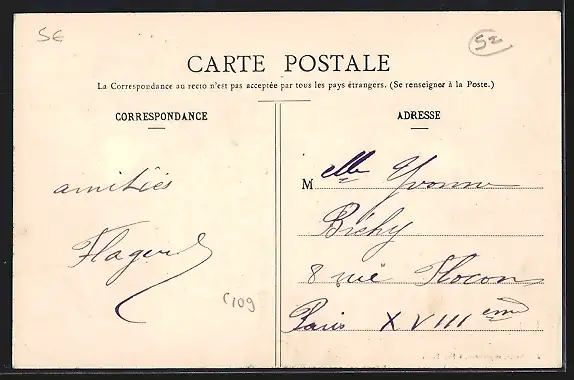 5€
5€
CARTE POSTALE
La Correspondance au recto n'est pas acceptée par tous les pays étrangers. (Se renseigner à la Poste.)
CORRESPONDANCE
amitiés
C109
ADRESSE
Melle Yvonne
Bichy
8 rue Flocon
Paris XVIIIeme